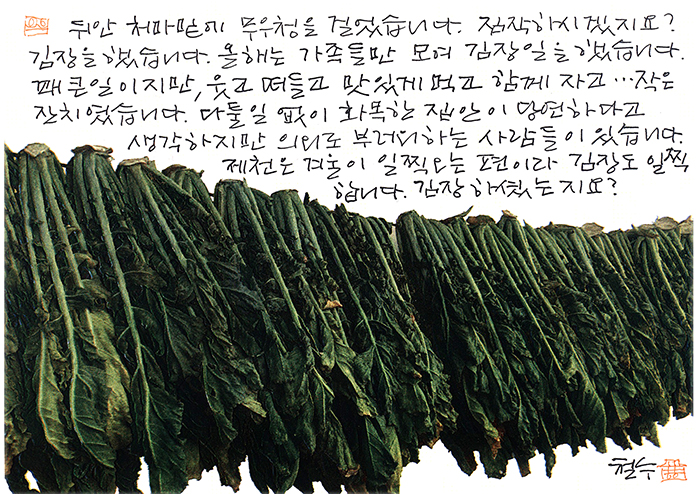 뒤안 처마밑에 무우청을 걸었습니다. 짐작하시겠지요?
김장을 했습니다. 올해는 가족들만 모여 김장일을 했습니다.
꽤 큰일이지만, 웃고 떠들고 맛있게 먹고 함께 자고…작은
잔치였습니다. 다툴일 없이 화목한 집안이 당연하다고
생각하지만 의외로 부러워하는 사람들이 있습니다.
제천은 겨울이 일찍오는 편이라 김장도 일찍
합니다. 김장 하셨는지요?
철수